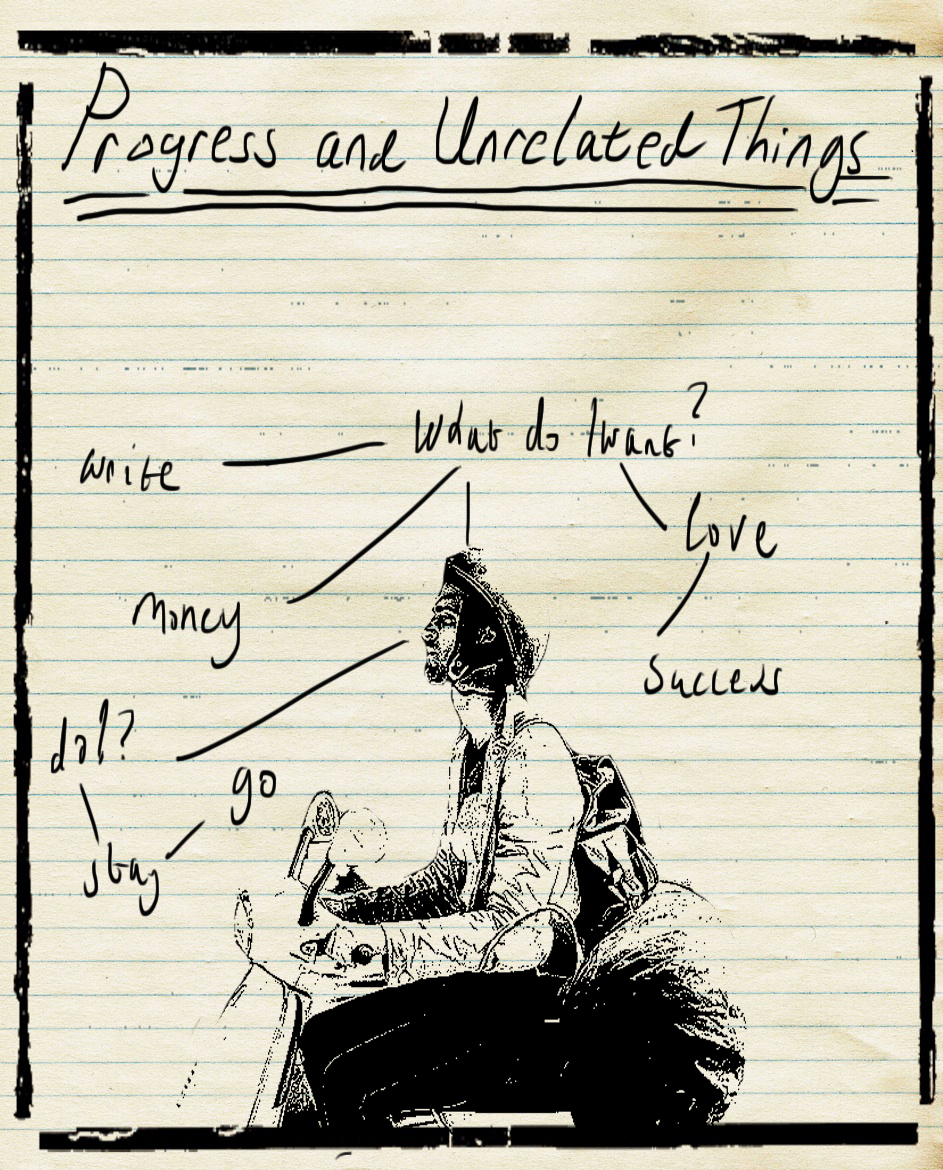 Progress and Unrelated Things
What do I want?
write
Love
Money
Success
do I?
go
stay